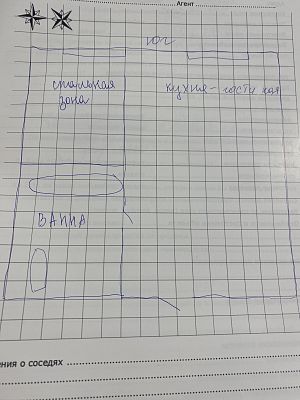 Агент
юг
спальная
зона
кухня - гостиная
ВАННА
ения о соседях